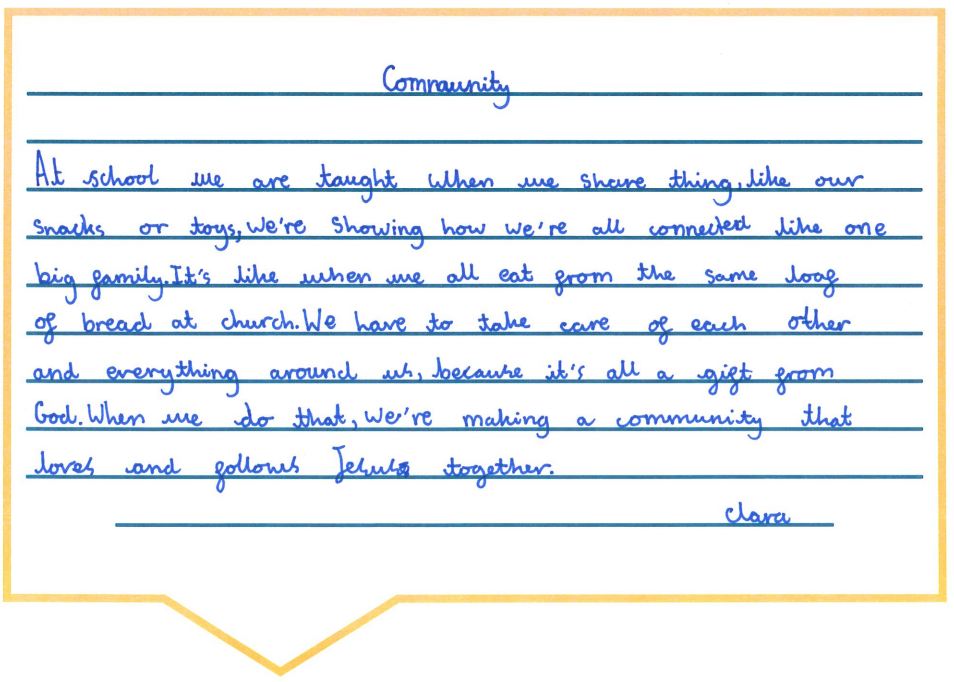 Community
At school we are taught when we share thing, like our
snacks or toys, we're showing how we're all connected like one
big family. It's like when we all eat from the same loaf
of bread at church. We have to take care of each other
and everything around us, because it's all a gift from
God. When we do that, we're making a community that
loves and follows Jesus together.
Clara